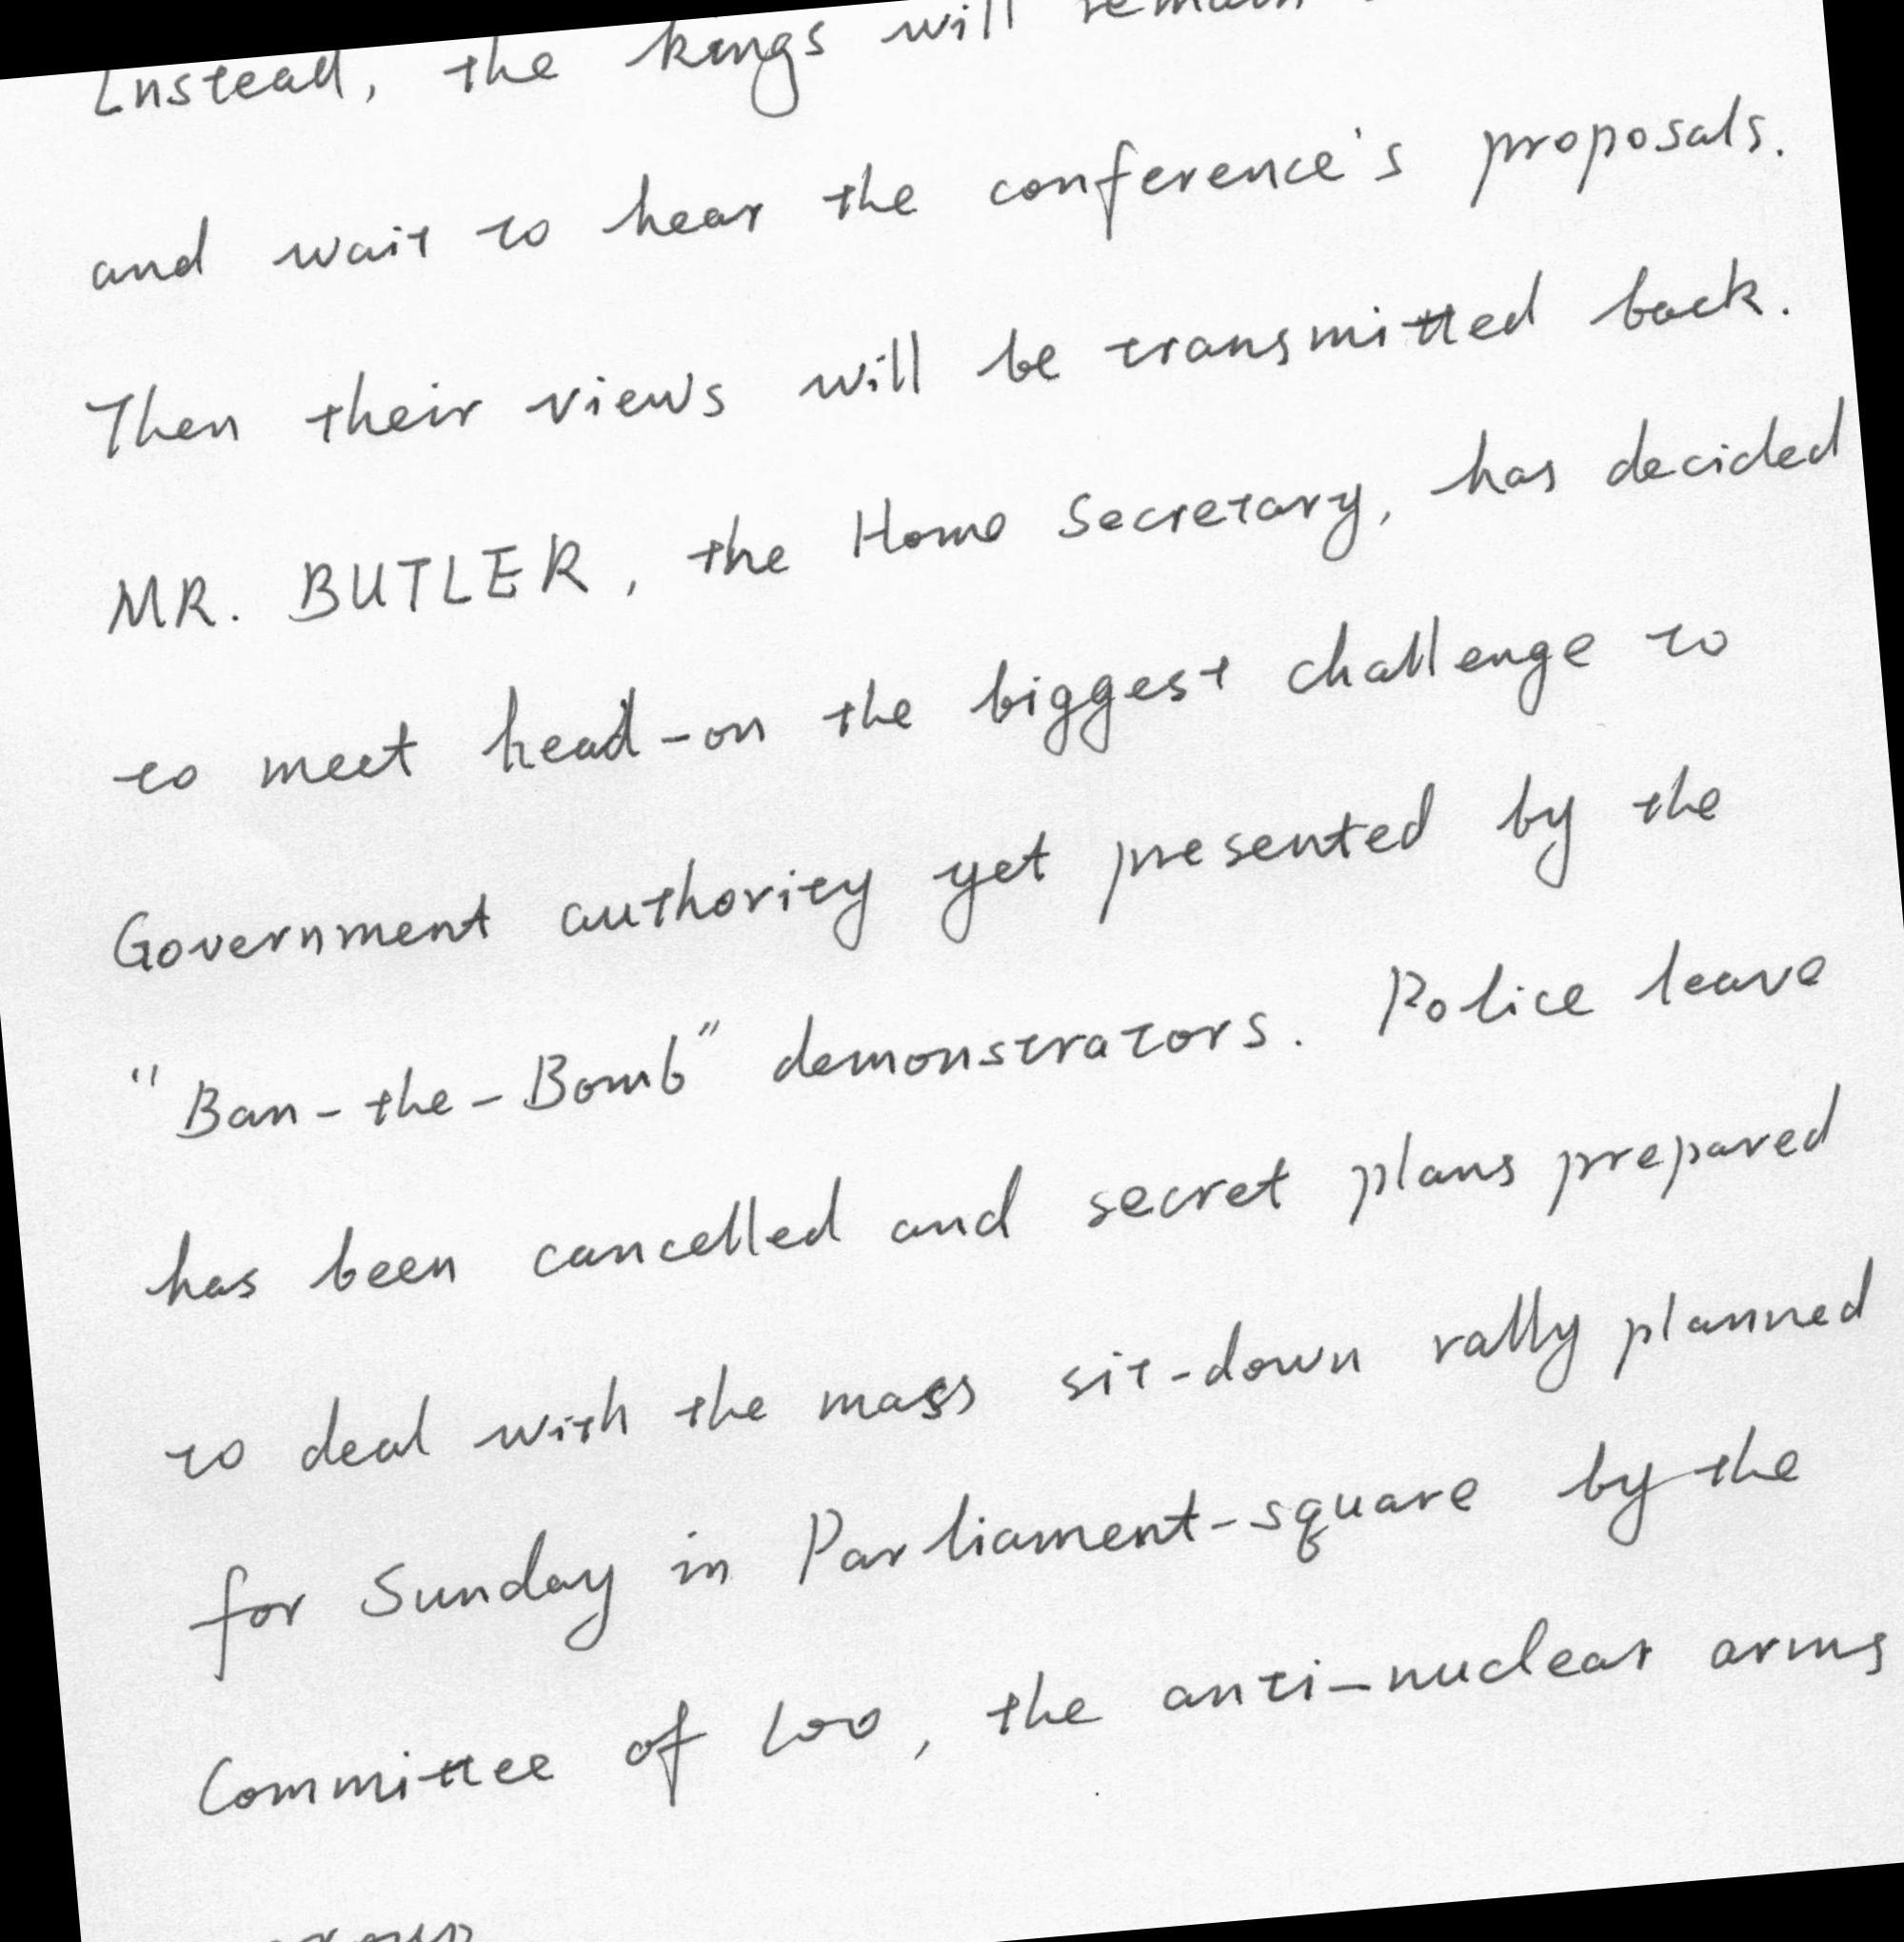 Instead, the kings will remain
and wait to hear the conference's proposals.
Then their views will be transmitted back.
MR. BUTLER, the Home Secretary, has decided
to meet head-on the biggest challenge to
Government authority yet presented by the
"Ban-the-Bomb" demonstrators. Police leave
has been cancelled and secret plans prepared
to deal with the mass sit-down rally planned
for Sunday in Parliament-square by the
Committee of 100, the anti-nuclear arms